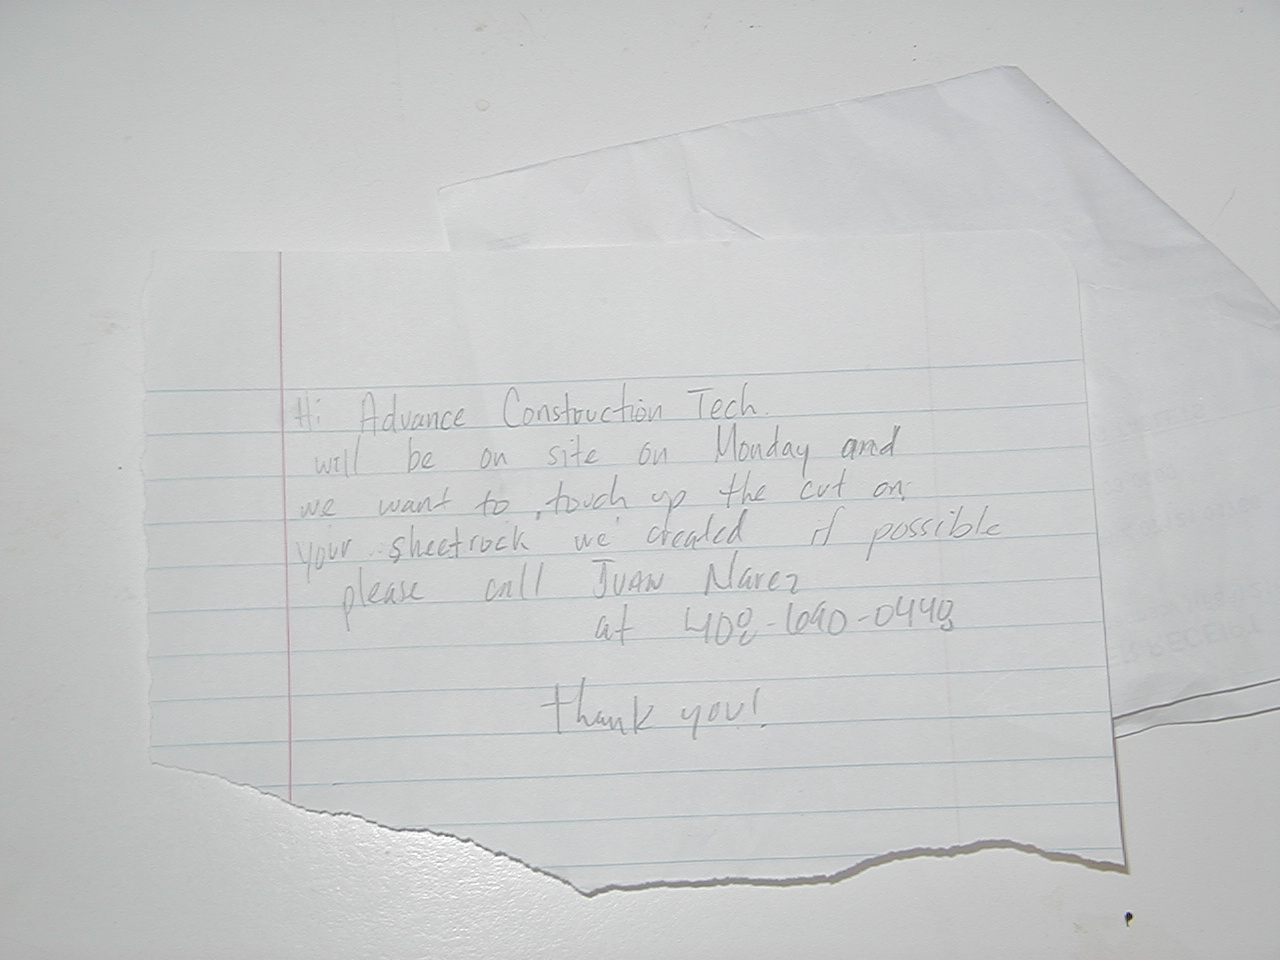 Hi Advance Construction Tech.
will be on site on Monday and
we want to touch up the cut on
your sheetrock we created if possible
please call JUAN Narez
at 408-690-0448
thank you!